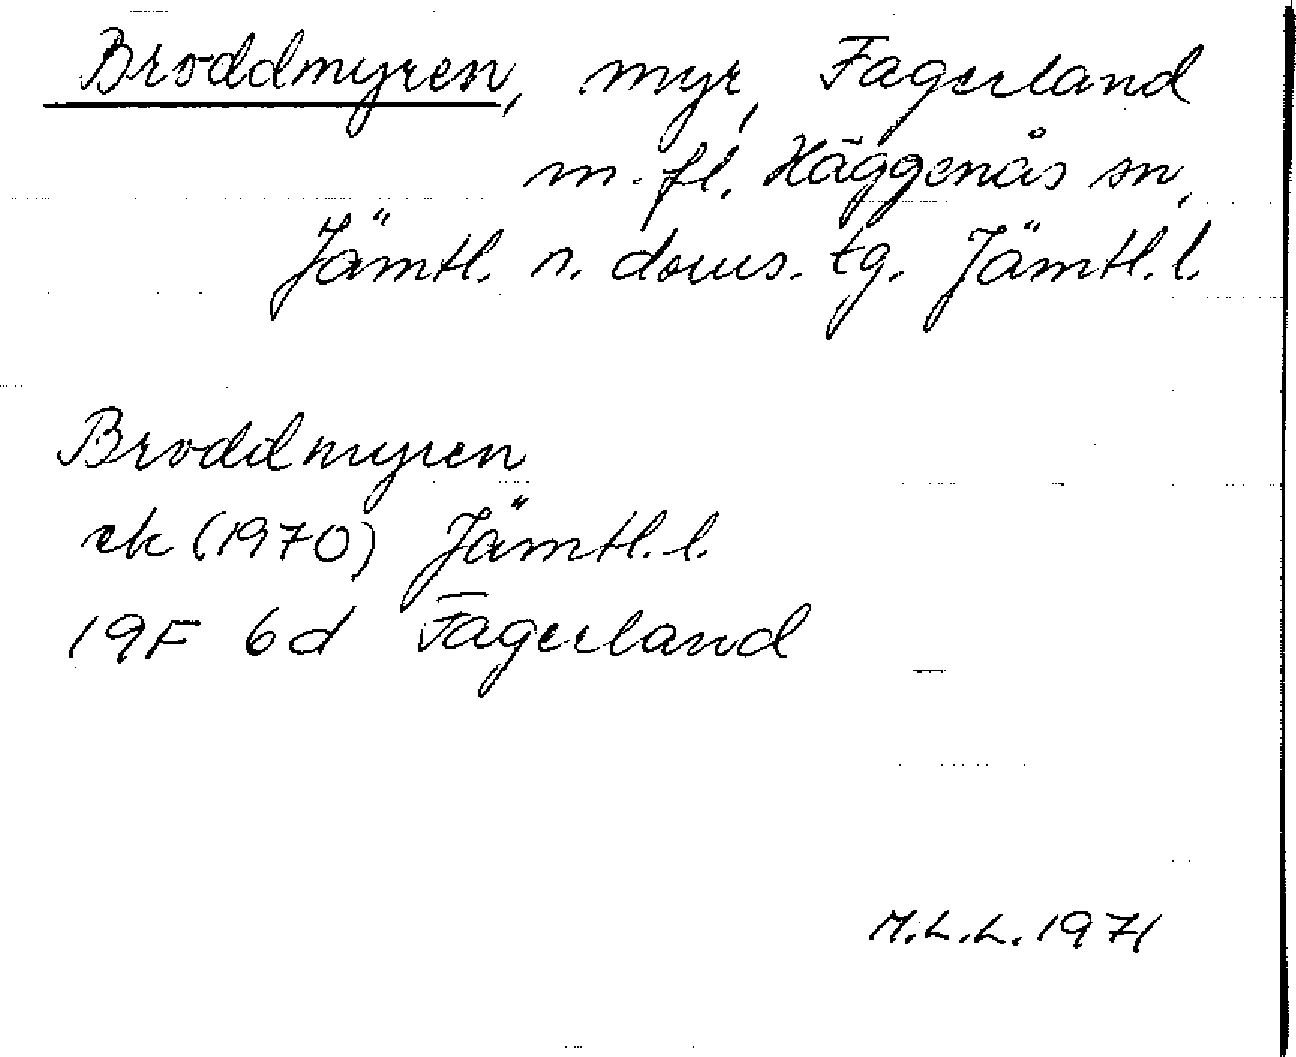 Broddmyren, myr, Fagerland
m. fl. Häggenås sn,
Jämtl. n. doms. tg. Jämtl. l.
Broddmyren
ek (1970) Jämtl. l.
19F 6d Fagerland
M.L.L. 1971